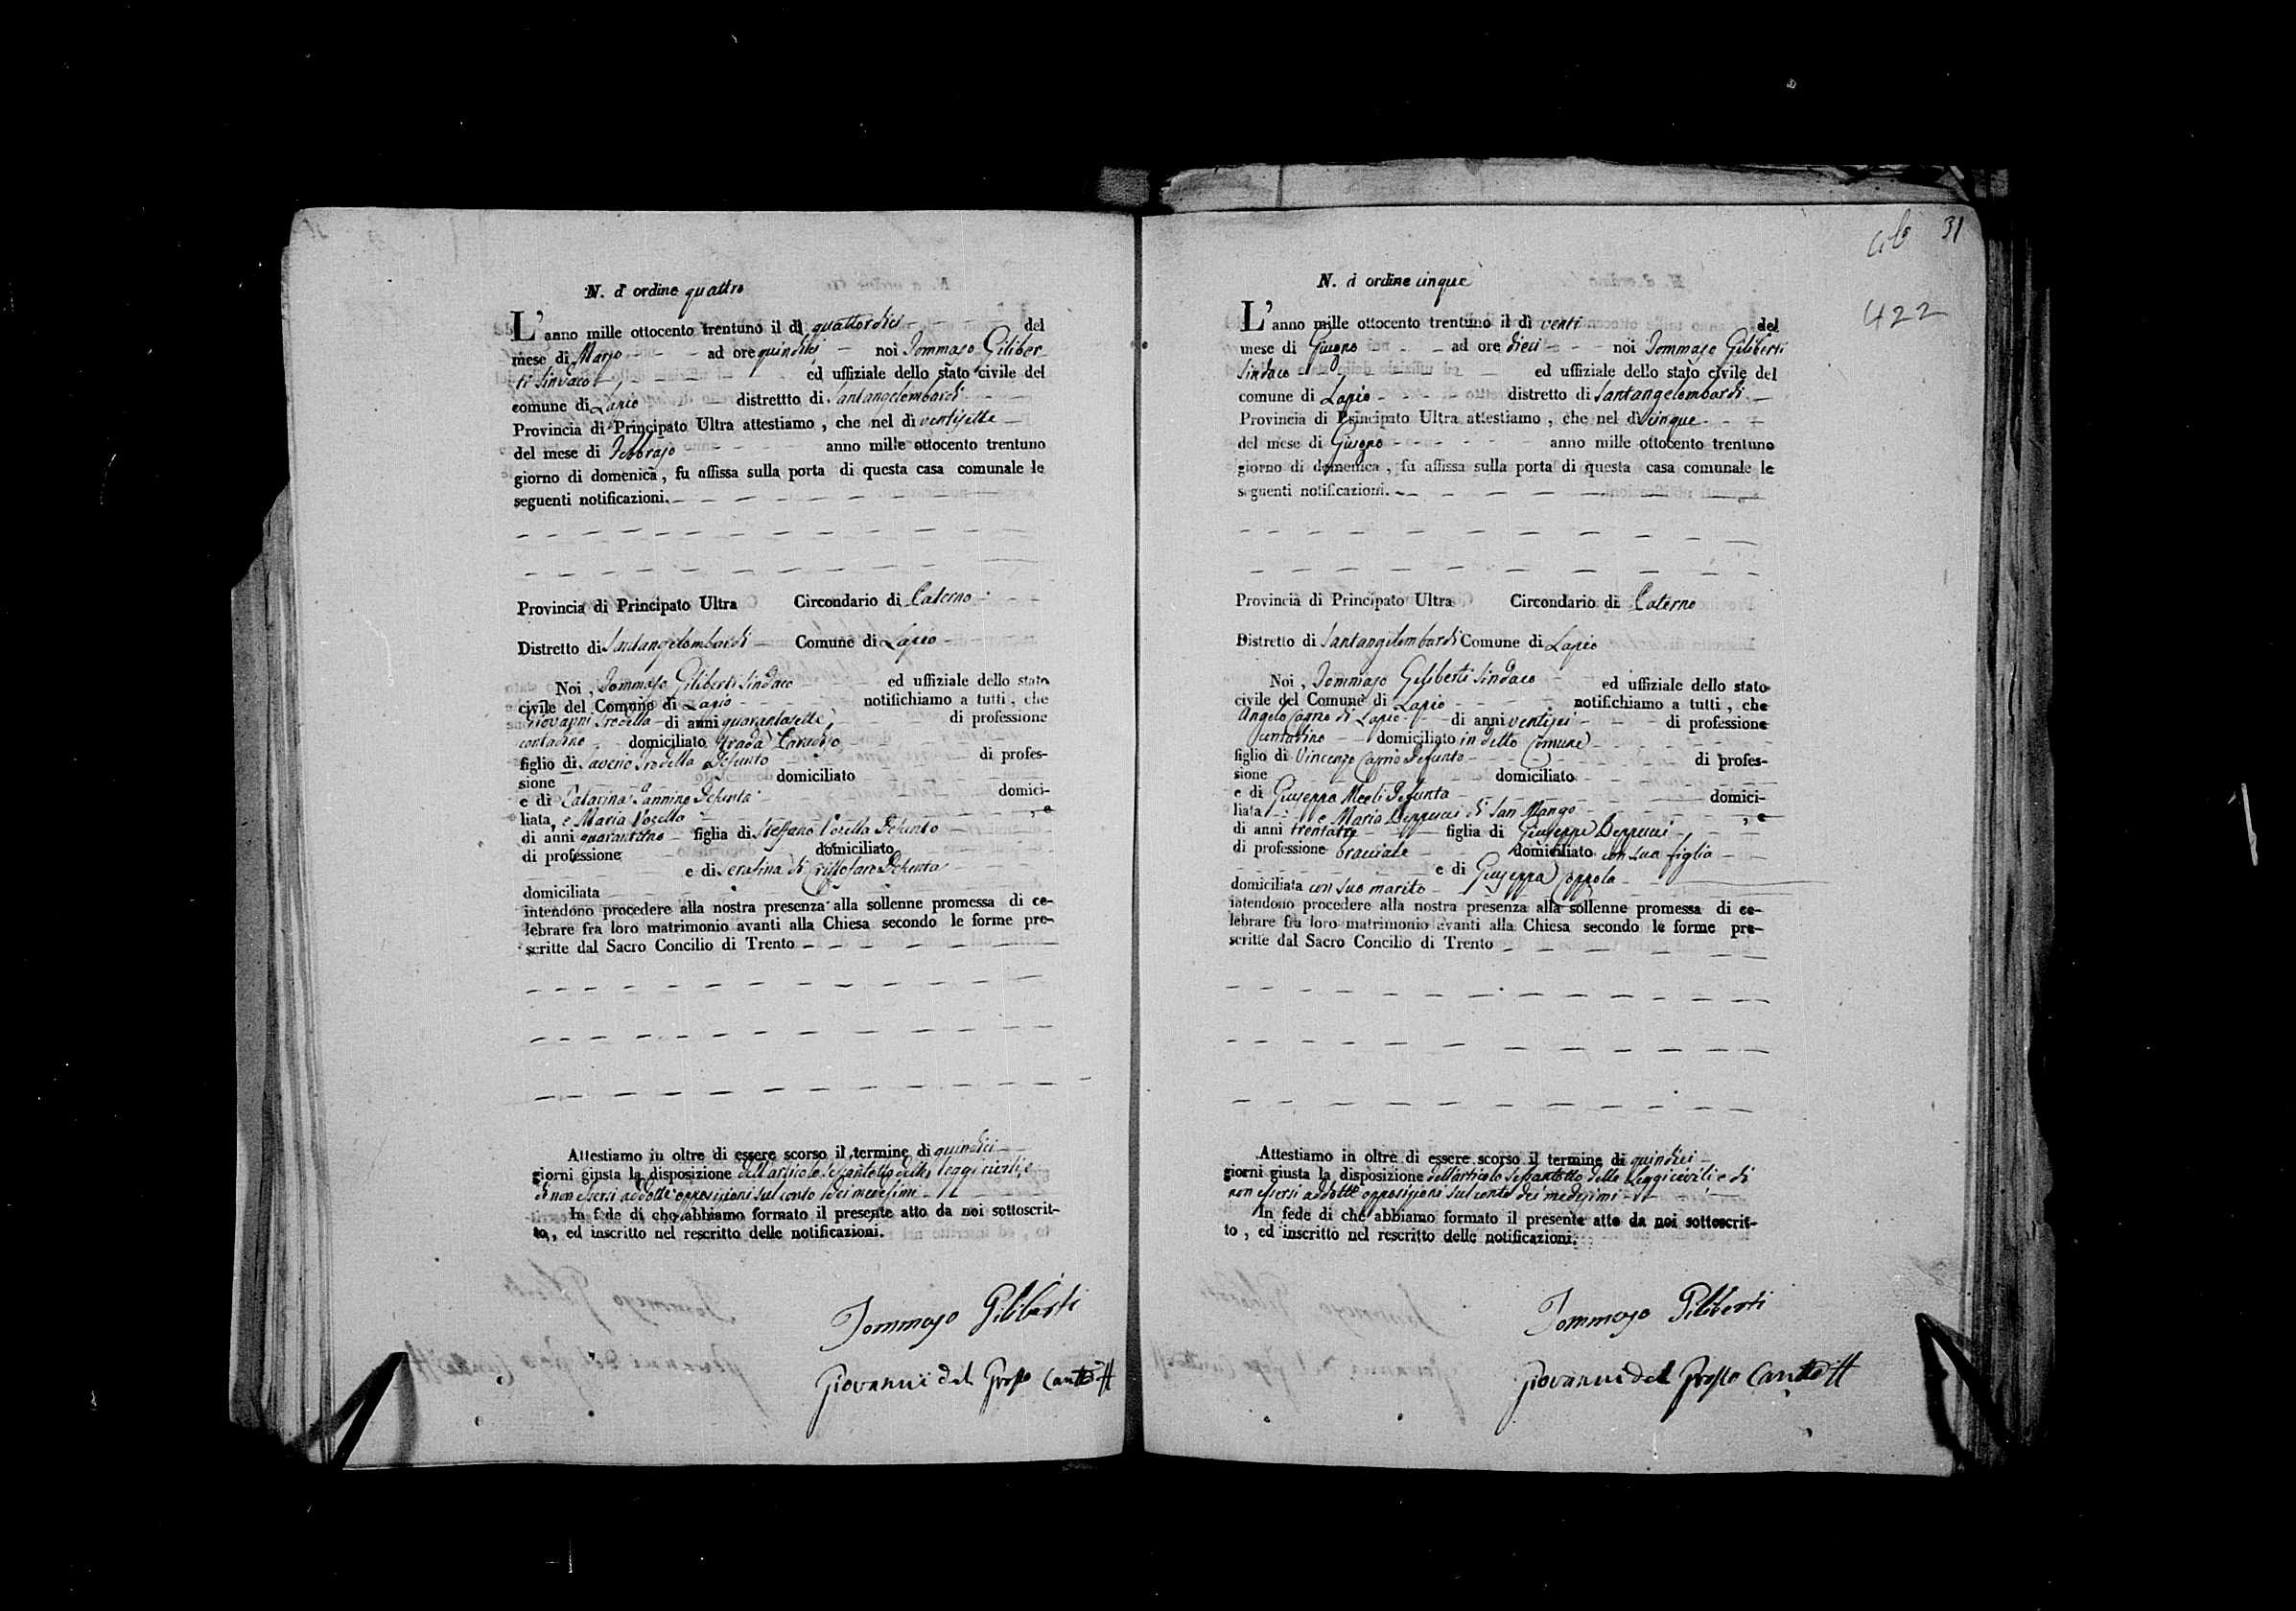 N. d' ordine quattro
L' anno mille ottocento trentuno il dì quattordici del
mese di Marzo ad ore quindici noi Tommaso Giliber-
ti Sindaco ed uffiziale dello stato civile del
comune di Lapio distrettto di Santangelombardi
Provincia di Principato Ultra attestiamo, che nel dì ventisette
del mese di Febbrajo anno mille ottocento trentuno
giorno di domenica, fu affissa sulla porta di questa casa comunale le
seguenti notificazioni.
Provincia di Principato Ultra Circondario di Paterno
Distretto di Santangelombardi Comune di Lapio
Noi, Tommaso Giliberti Sindaco ed uffiziale dello stato
civile del Comune di Lapio notifichiamo a tutti, che
Giovanni Trodella di anni quarantasette di professione
contadino domiciliato strada Paradiso
figlio di Saverio Trodella Defunto di profes-
sione domiciliato
e di Catarina Pannino Defunta domici-
liata, e Maria Vosella , e
di anni quarantuno figlia di Steffano Vosella Defunto
di professione domiciliato
e di Serafina di Cristofaro Defunta
domiciliata
intendono procedere alla nostra presenza alla sollenne promessa di ce-
lebrare fra loro matrimonio avanti alla Chiesa secondo le forme pre-
scritte dal Sacro Concilio di Trento
Attestiamo in oltre di essere scorso il termine di quindici
giorni giusta la disposizione dell'articolo sessantotto delle leggi civili, e
di non essersi addotte opposizioni sul conto dei medesimi
In fede di che abbiamo formato il presente atto da noi sottoscrit-
to, ed inscritto nel rescritto delle notificazioni.
Tommaso Giliberti
Giovanni del Grosso Canc
31
422
N. d ordine cinque
L' anno mille ottocento trentuno il dì venti del
mese di Giugno ad ore dieci noi Tommaso Giliberti
Sindaco ed uffiziale dello stato civile del
comune di Lapio distretto di Santangelombardi
Provincia di Principato Ultra attestiamo, che nel dì cinque
del mese di Giugno anno mille ottocento trentuno
giorno di domenica, fu affissa sulla porta di questa casa comunale le
seguenti notificazioni.
Provincia di Principato Ultra Circondario di Paterno
Distretto di Santangelombardi Comune di Lapio
Noi, Tommaso Giliberti Sindaco ed uffiziale dello stato
civile del Comune di Lapio notifichiamo a tutti, che
Angelo Carno di Lapio di anni ventisei di professione
contadino domiciliato in detto Comune
figlio di Vincenzo Carno Defunto di profes-
sione domiciliato
e di Giuseppa Meoli Defunta domici-
liata e Maria Beppucci di San Mango , e
di anni trentatre figlia di Giuseppe Beppucci
di professione bracciale domiciliato con sua figlia
e di Giuseppa Coppola
domiciliata con suo marito
intendono procedere alla nostra presenza alla sollenne promessa di ce-
lebrare fra loro matrimonio avanti alla Chiesa secondo le forme pre-
scritte dal Sacro Concilio di Trento
Attestiamo in oltre di essere scorso il termine di quindici
giorni giusta la disposizione dell'articolo sessantotto delle Leggi civili e di
non essersi addotte opposizione sul conto dei medesimi
In fede di che abbiamo formato il presente atto da noi sottoscrit-
to, ed inscritto nel rescritto delle notificazioni.
Tommaso Giliberti
Giovanni del Grosso Canc